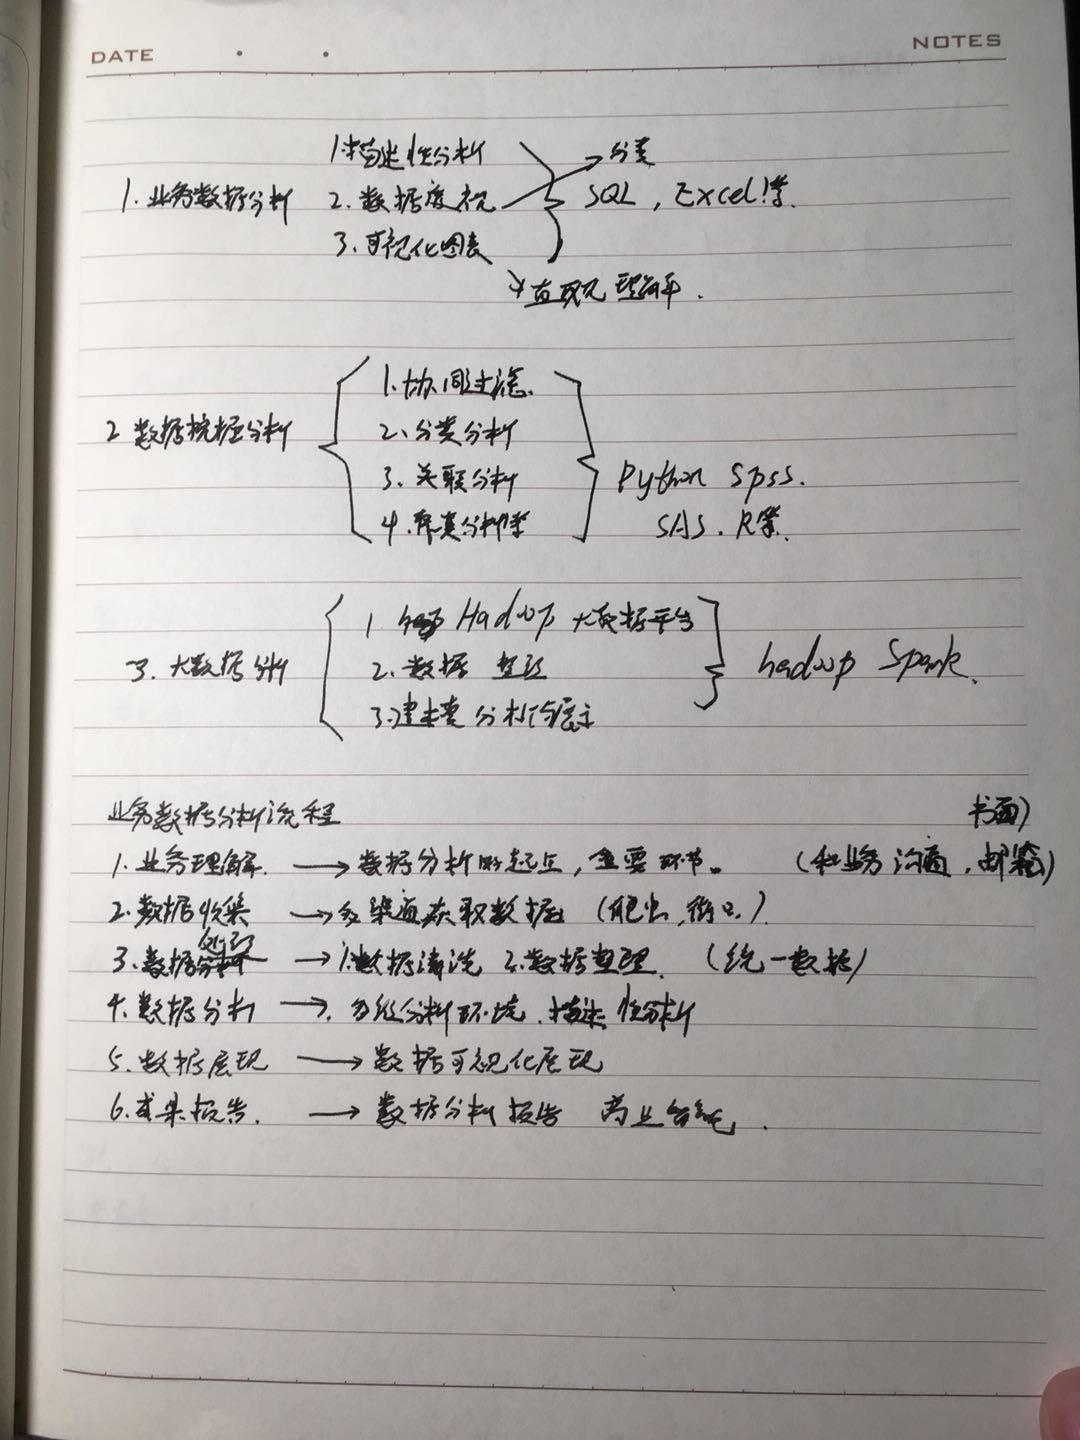 DATE NOTES
1.描述性分析 分类
1.业务数据分析 2.数据透视 SQL,Excel等.
3.可视化图表
直观 理解.
1.协同过滤.
2 数据挖掘分析 2、分类分析
3.关联分析 Python Spss.
4.聚类分析等 SAS、R等.
1 Hadoop 大数据平台
3.大数据分析 2.数据 hadoop Spark.
3.建模 分析与展示
业务数据分析流程 书面)
1.业务理解. → 数据分析的起点,重要环节。 (和业务沟通,邮箱)
2.数据收集 → 多渠道获取数据 (爬虫,接口.)
处理
3.数据分析 → 1.数据清洗 2.数据整理. (统一数据)
4.数据分析 → 分析环境、描述性分析
5.数据展现 → 数据可视化展现
6.成果报告. → 数据分析报告 商业智能.